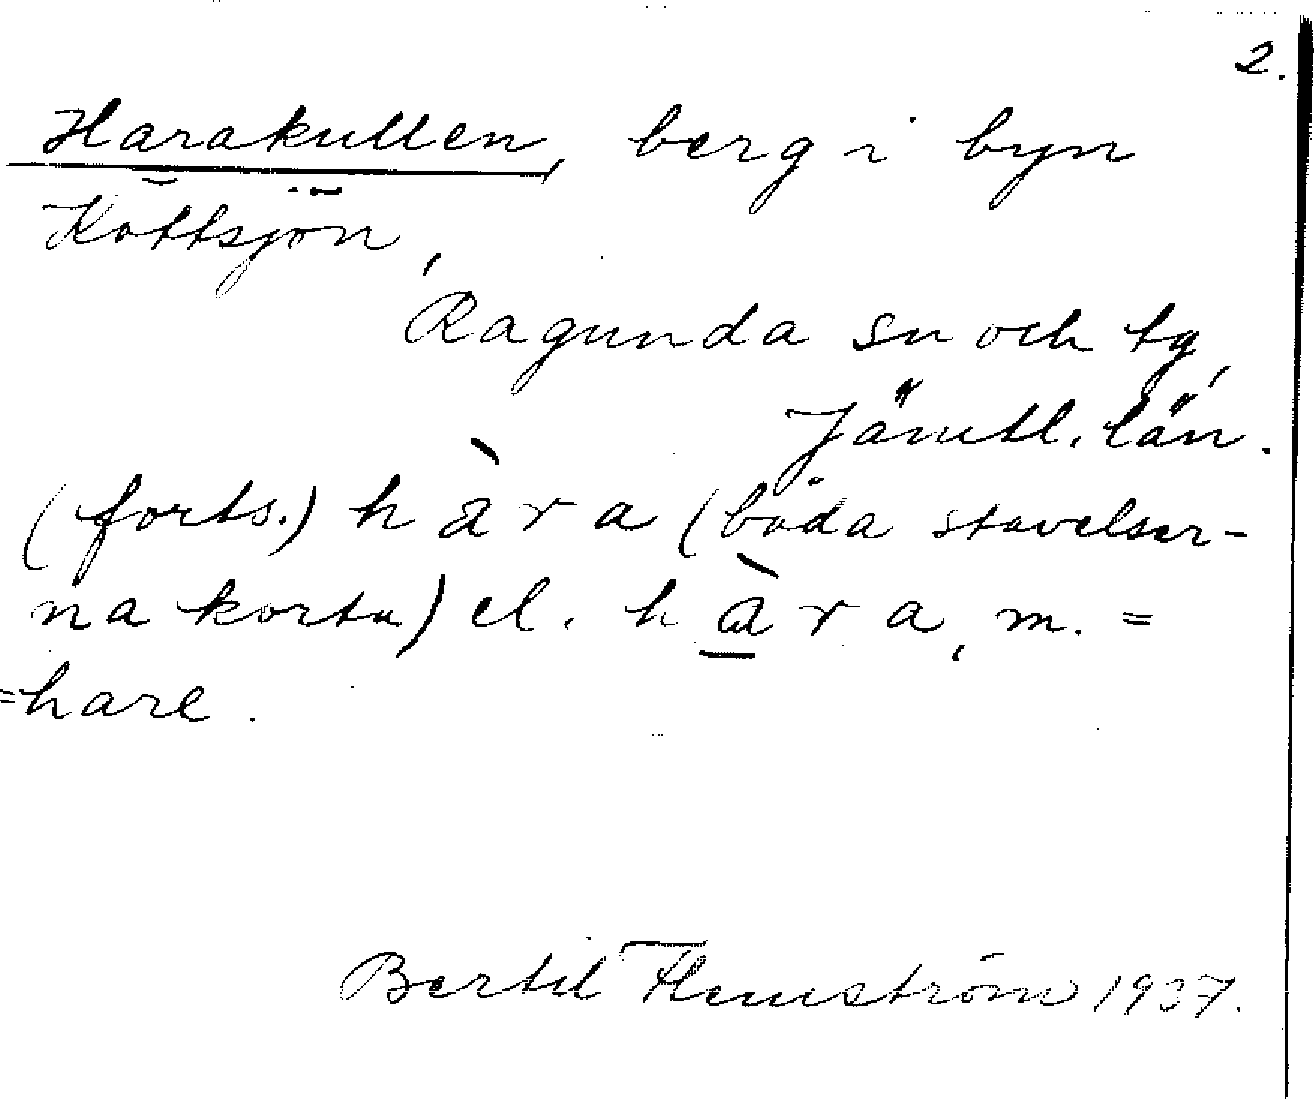 2.
Harakullen, berg i byn
Köttsjön,
Ragunda sn och tg,
Jämtl. län.
(forts.) h à r a (båda stavelser-
na korta) el. h à r a, m. =
=hare.
Bertil Flemström 1937.